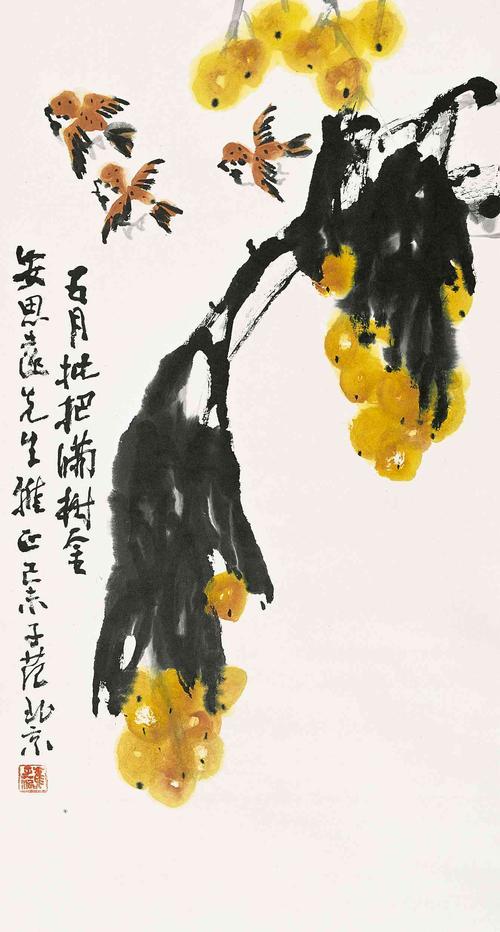 五月枇杷满树金
安思遠先生雅正己未子范北京